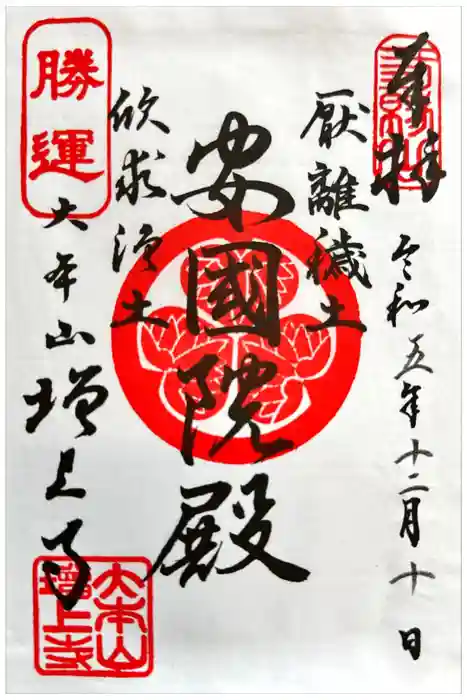 奉拝
令和五年十二月十日
厭離穢土
安國院殿
欣求浄土
勝運
大本山増上寺
大本山
増上寺